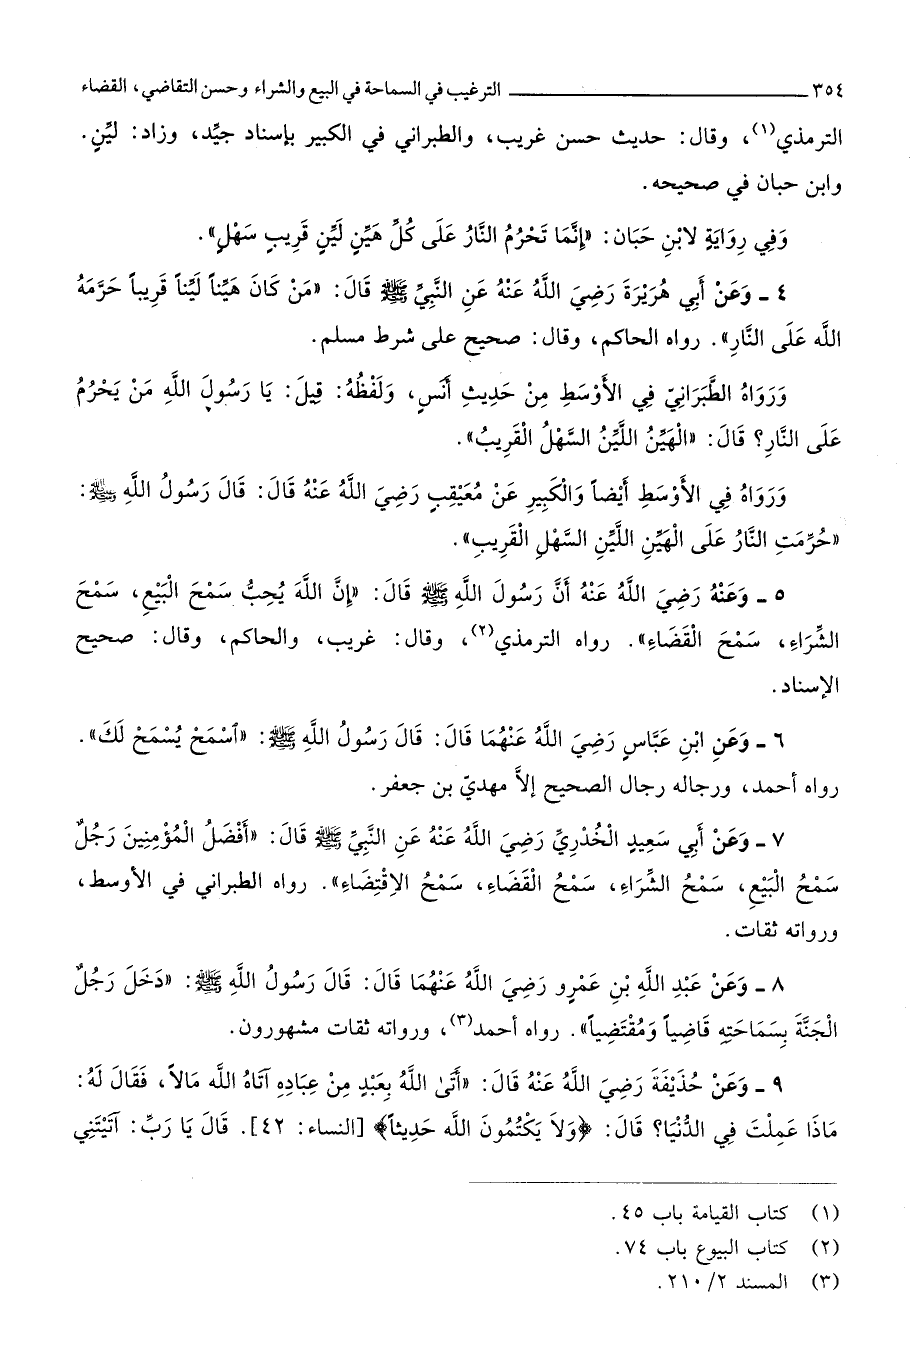 ٣٥٤ ــــــــــ الترغيب في السماحة في البيع والشراء وحسن التقاضي، القضاء
الترمذي(١)، وقال: حديث حسن غريب، والطبراني في الكبير بإسناد جيِّد، وزاد: ليِّنٍ.
وابن حبان في صحيحه.
وَفِي رِوَايَةٍ لابْنِ حَبَان: «إِنَّمَا تَحْرُمُ النَّارُ عَلَى كُلِّ هَيِّنٍ لَيِّنٍ قَرِيبٍ سَهْلٍ».
٤ ـ وَعَنْ أَبِي هُرَيْرَةَ رَضِيَ اللَّهُ عَنْهُ عَنِ النَّبِيِّ ﷺ قَالَ: «مَنْ كَانَ هَيِّناً لَيِّناً قَرِيباً حَرَّمَهُ
اللَّه عَلَى النَّارِ». رواه الحاكم، وقال: صحيح على شرط مسلم.
وَرَوَاهُ الطَّبَرَانِيّ فِي الأَوْسَطِ مِنْ حَدِيثِ أَنَسٍ، وَلَفْظُهُ: قِيلَ: يَا رَسُولَ اللَّهِ مَنْ يَحْرُمُ
عَلَى النَّارِ؟ قَالَ: «الْهَيِّنُ اللَّيِّنُ السَّهْلُ الْقَرِيبُ».
وَرَوَاهُ فِي الأَوْسَطِ أَيْضاً وَالْكَبِيرِ عَنْ مُعَيْقِبٍ رَضِيَ اللَّهُ عَنْهُ قَالَ: قَالَ رَسُولُ اللَّهِ ﷺ:
«حُرِّمَتِ النَّارُ عَلَى الْهَيِّنِ اللَّيِّنِ السَّهْلِ الْقَرِيبِ».
٥ ـ وَعَنْهُ رَضِيَ اللَّهُ عَنْهُ أَنَّ رَسُولَ اللَّهِ ﷺ قَالَ: «إِنَّ اللَّهَ يُحِبُّ سَمْحَ الْبَيْعِ، سَمْحَ
الشِّرَاءِ، سَمْحَ الْقَضَاءِ». رواه الترمذي(٢)، وقال: غريب، والحاكم، وقال: صحيح
الإسناد.
٦ ـ وَعَنِ ابْنِ عَبَّاسٍ رَضِيَ اللَّهُ عَنْهُمَا قَالَ: قَالَ رَسُولُ اللَّهِ ﷺ: «ٱسْمَحْ يُسْمَحْ لَكَ».
رواه أحمد، ورجاله رجال الصحيح إلاَّ مهديّ بن جعفر.
٧ ـ وَعَنْ أَبِي سَعِيدٍ الْخُدْرِيِّ رَضِيَ اللَّهُ عَنْهُ عَنِ النَّبِيِّ ﷺ قَالَ: «أَفْضَلُ الْمُؤْمِنِينَ رَجُلٌ
سَمْحُ الْبَيْعِ، سَمْحُ الشِّرَاءِ، سَمْحُ الْقَضَاءِ، سَمْحُ الاِقْتِضَاءِ». رواه الطبراني في الأوسط،
ورواته ثقات.
٨ ـ وَعَنْ عَبْدِ اللَّهِ بْنِ عَمْرٍو رَضِيَ اللَّهُ عَنْهُمَا قَالَ: قَالَ رَسُولُ اللَّهِ ﷺ: «دَخَلَ رَجُلٌ
الْجَنَّةَ بِسَمَاحَتِهِ قَاضِياً وَمُقْتَضِياً». رواه أحمد(٣)، ورواته ثقات مشهورون.
٩ ـ وَعَنْ حُذَيْفَةَ رَضِيَ اللَّهُ عَنْهُ قَالَ: «أَتَىٰ اللَّهُ بِعَبْدٍ مِنْ عِبَادِهِ آتَاهُ اللَّه مَالاً، فَقَالَ لَهُ:
مَاذَا عَمِلْتَ فِي الدُّنْيَا؟ قَالَ: ﴿وَلاَ يَكْتُمُونَ اللَّه حَدِيثاً﴾ [النساء: ٤٢]. قَالَ يَا رَبِّ: آتَيْتَنِي
(١) كتاب القيامة باب ٤٥.
(٢) كتاب البيوع باب ٧٤.
(٣) المسند ٢/ ٢١٠.